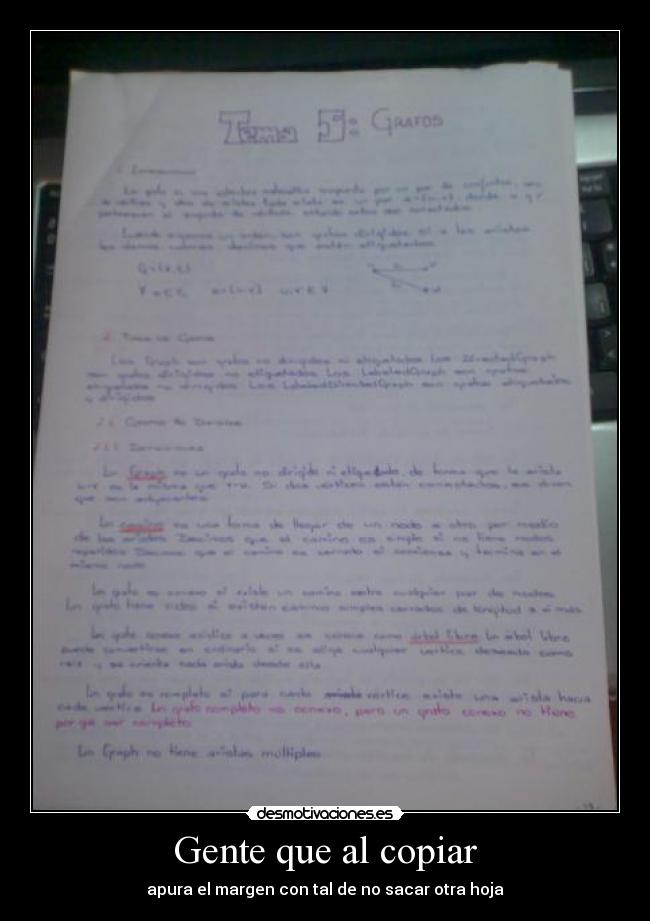 Tema 5: GRAFOS
1. Introducción
Un grafo es una estructura matemática compuesta por un par de conjuntos, uno
de vértices y otro de aristas. Cada arista es un par a=(u,v), donde u y v
pertenecen al conjunto de vértices, estando estos dos conectados.
los demás valores decimos que están etiquetados.
G=(V,E)
2. Tipos de Grafos
Los Graph son grafos no dirigidos ni etiquetados. Los DirectedGraph
son grafos dirigidos no etiquetados. Los LabeledGraph son grafos
etiquetados no dirigidos. Los LabeledDirectedGraph son grafos etiquetados
y dirigidos.
2.1.1 Definiciones
Un Graph es un grafo no dirigido ni etiquetado, de forma que la arista
u-v es la misma que v-u. Si dos vértices están conectados, se dicen
que son adyacentes.
Un camino es una forma de llegar de un nodo a otro por medio
de las aristas. Decimos que el camino es simple si no tiene nodos
repetidos. Decimos que el camino es cerrado si comienza y termina en el
mismo nodo.
Un grafo es conexo si existe un camino entre cualquier par de nodos.
Un grafo tiene ciclos si existen caminos simples cerrados de longitud 3 o más.
Un grafo conexo acíclico a veces se conoce como árbol libre. Un árbol libre
puede convertirse en ordinario si se elige cualquier vértice deseado como
raíz y se orienta cada arista desde ella.
Un grafo es completo si para cada vértice existe una arista hacia
cada vértice. Un grafo completo es conexo, pero un grafo conexo no tiene
por qué ser completo.
Un Graph no tiene aristas múltiples.
desmotivaciones.es
Gente que al copiar
apura el margen con tal de no sacar otra hoja